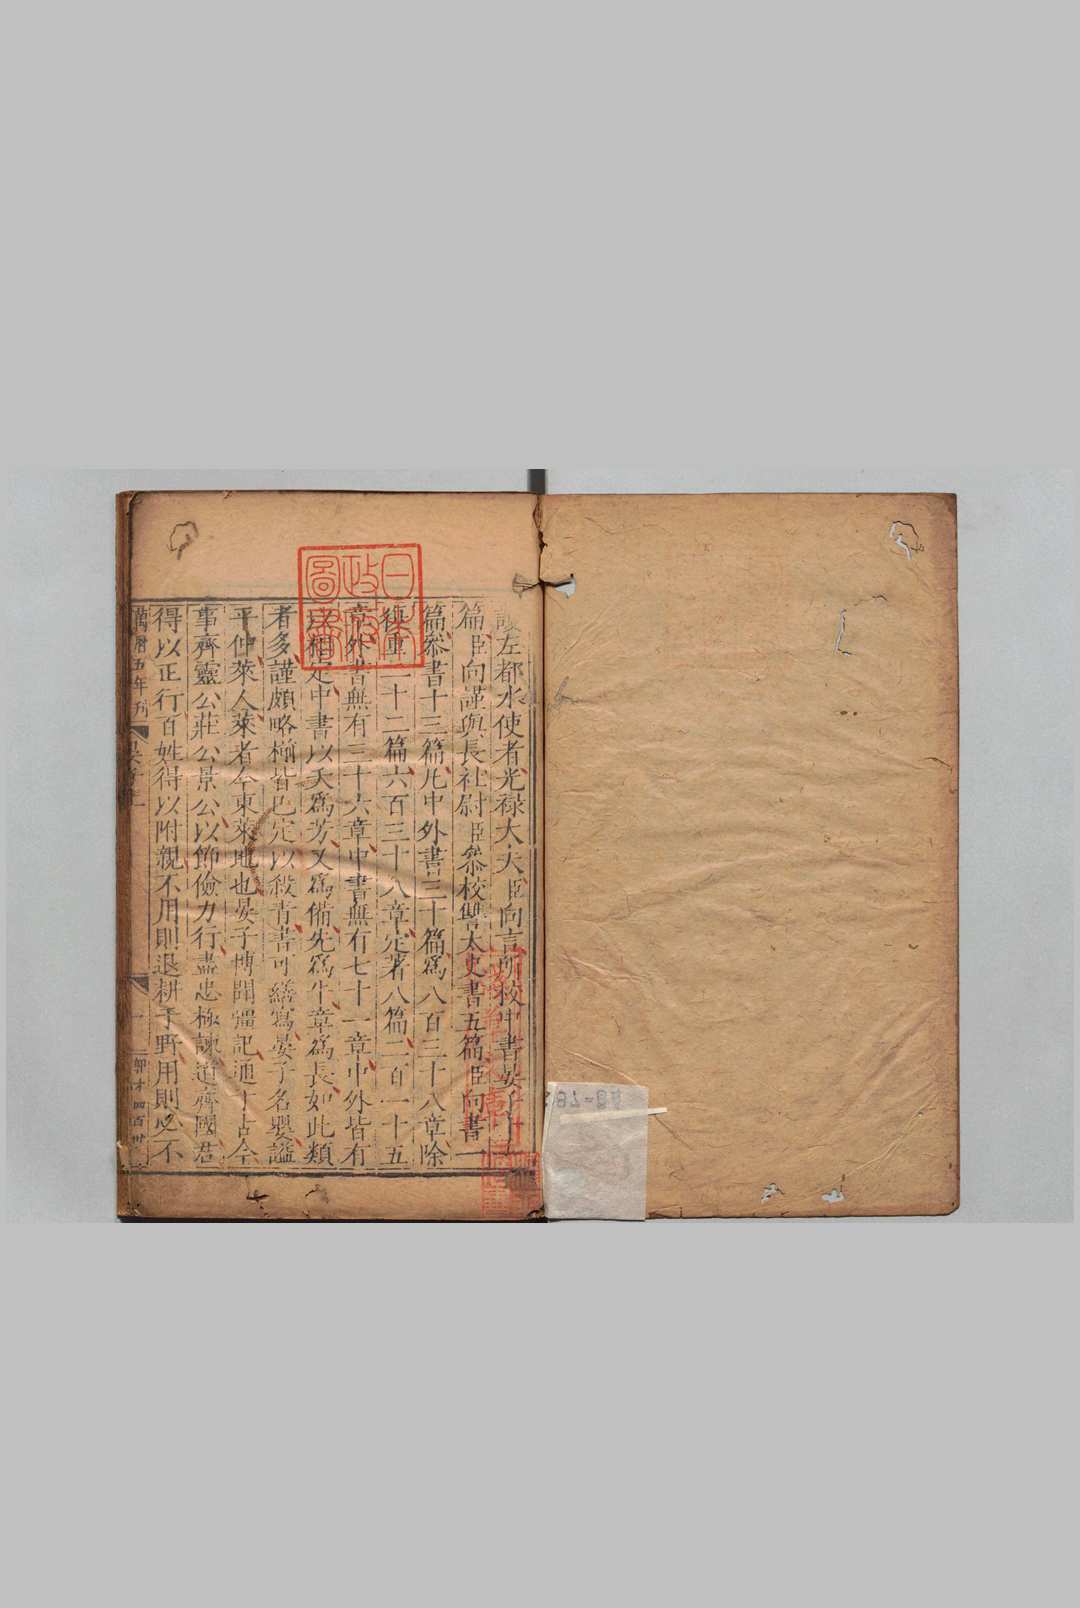 護左都水使者光祿大夫臣向言所校中書晏子十一
篇臣向謹與長社尉臣叅校讐太史書五篇臣向書一
篇叅書十三篇凡中外書三十篇爲八百三十八章除
復重二十二篇六百三十八章定著八篇二百一十五
章外書無有三十六章中書無有七十一章中外皆有
以相定中書以夭爲芳又爲備先爲牛章爲長如此類
者多謹頗略椾皆已定以殺青書可繕寫晏子名嬰謚
平仲萊人萊者今東萊地也晏子博聞彊記通于古今
事齊靈公莊公景公以節儉力行盡忠極諫道齊國君
得以正行百姓得以附親不用則退耕于野用則必不
萬曆五年刊 晏子上 一
日本政府圖書